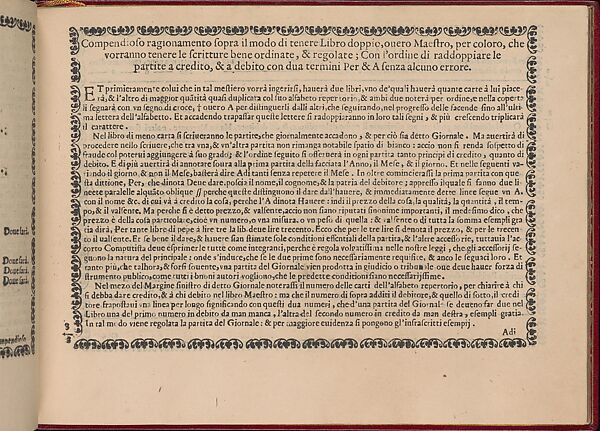 Compendioso ragionamento sopra il modo di tenere Libro doppio, ouero Maestro, per coloro, che
vorranno tenere le scritture bene ordinate, & regolate; Con l'ordine di raddoppiare le
partite a credito, & a debito con dua termini Per & A senza alcuno errore.
ET primieramente colui che in tal mestiero vorrà ingerirsi, hauerà due libri, vno de'quali hauerà quante carte à lui piace-
rà, & l'altro di maggior quãtità quasi duplicata col suo alfabeto repertorio, & ambi due noterà per ordine, e nella coperta
li segnarà con vn segno di croce, † ouero A per distinguerli dalli altri, che seguitando, nel progresso delle facende sino all'ulti-
ma lettera dell'alfabeto. Et accadendo trapassar queste lettere si raddoppiaranno in loro tali segni, & più crescendo triplicarà
il carattere.
Nel libro di meno carta si scriueranno le partite, che giornalmente accadono, & per ciò sia detto Giornale. Ma auertirà di
procedere nello scriuere, che tra vna, & vn'altra partita non rimanga notabile spatio di bianco: acciò non si renda sospetto di
fraude col poterui aggiungere à suo grado; & l'ordine seguito si osseruerà in ogni partita tanto principi di credito, quanto di
debito. E di più auertirà di annotare sopra alla prima partita della facciata l'Anno, il Mese, & il giorno. Et nelle seguenti va-
riando il giorno, & non il Mese, basterà dire Adi tanti senza repetere il Mese. In oltre comincierassi la prima partita con que-
sta dittione, Per, che dinota Dene dare, posia il nome, il cognome, & la patria del debitore; appresso il quale si fanno due li-
neete parallele alquãto oblique // perche queste distinguono il dare dall'hauere, & immediatamente dette linee segue vn A.
con il nome &c. di cui và à credito la cosa, perche l'A dinota Hauere: indi il prezzo della cosa, la qualità, la quantità, il tem-
po, & il valsente. Ma perche si è detto prezzo, & valente, acciò non siano riputati sinonime importanti, il medesimo dico, che
prezzo è della cosa particolare, cioè vn numero, ò vna misura, ò vn peso di quella: & il alsente ò di tutta la somma esempli gra-
tia dirà, Per tante libre di pepe à lire tre la lib. deue lire trecento. Ecco che per le tre lire si denota il prezzo, & per le trecen-
to il valsente. Et se bene il dare, & hauere sian stimate sole conditioni essentiali della partita, & l'altre accessorie, tuttauia l'ac-
corto Computista deue esprimer le tutte come integranti, perche è regola volgatissima nelle nostre leggi, che gli accessorij se-
guono la natura del principale: onde s'induce, che se le due prime sono necessariamente requisite, & anco le seguaci loro. Et
tanto più, che talhora, & forsi souente, vna partita del Giornale vien prodotta in giudicio o tribunale oue deue hauer forza di
strumento publico, come tutti i buoni autori vogliono, che le predette conditioni siano necessarijssime.
Nel mezo del Margine sinistro di detto Giornale noterassi il numero delle carti dell'alfabeto repertorio, per chiarire à chi
si debba dare credito, & à chi debito nel libro Maestro: ma che il numero di sopra additi il debitore, & quello di sotto, il credi-
tore. Trapostaui vna linea per lungo significando con questi dua numeri, che d'una partita del Giornale se deueno far due nel
Libro una del primo numero in debito da man manca, l'altra del secondo numero in credito da man destra, esempli gratia.
In tal modo viene regolata la partita del Giornale: & per maggiore euidenza si pongono gl'infrascritti esempij.
Adi
Deue fari.
Deue fari.
Deue fari.
Deue fari.